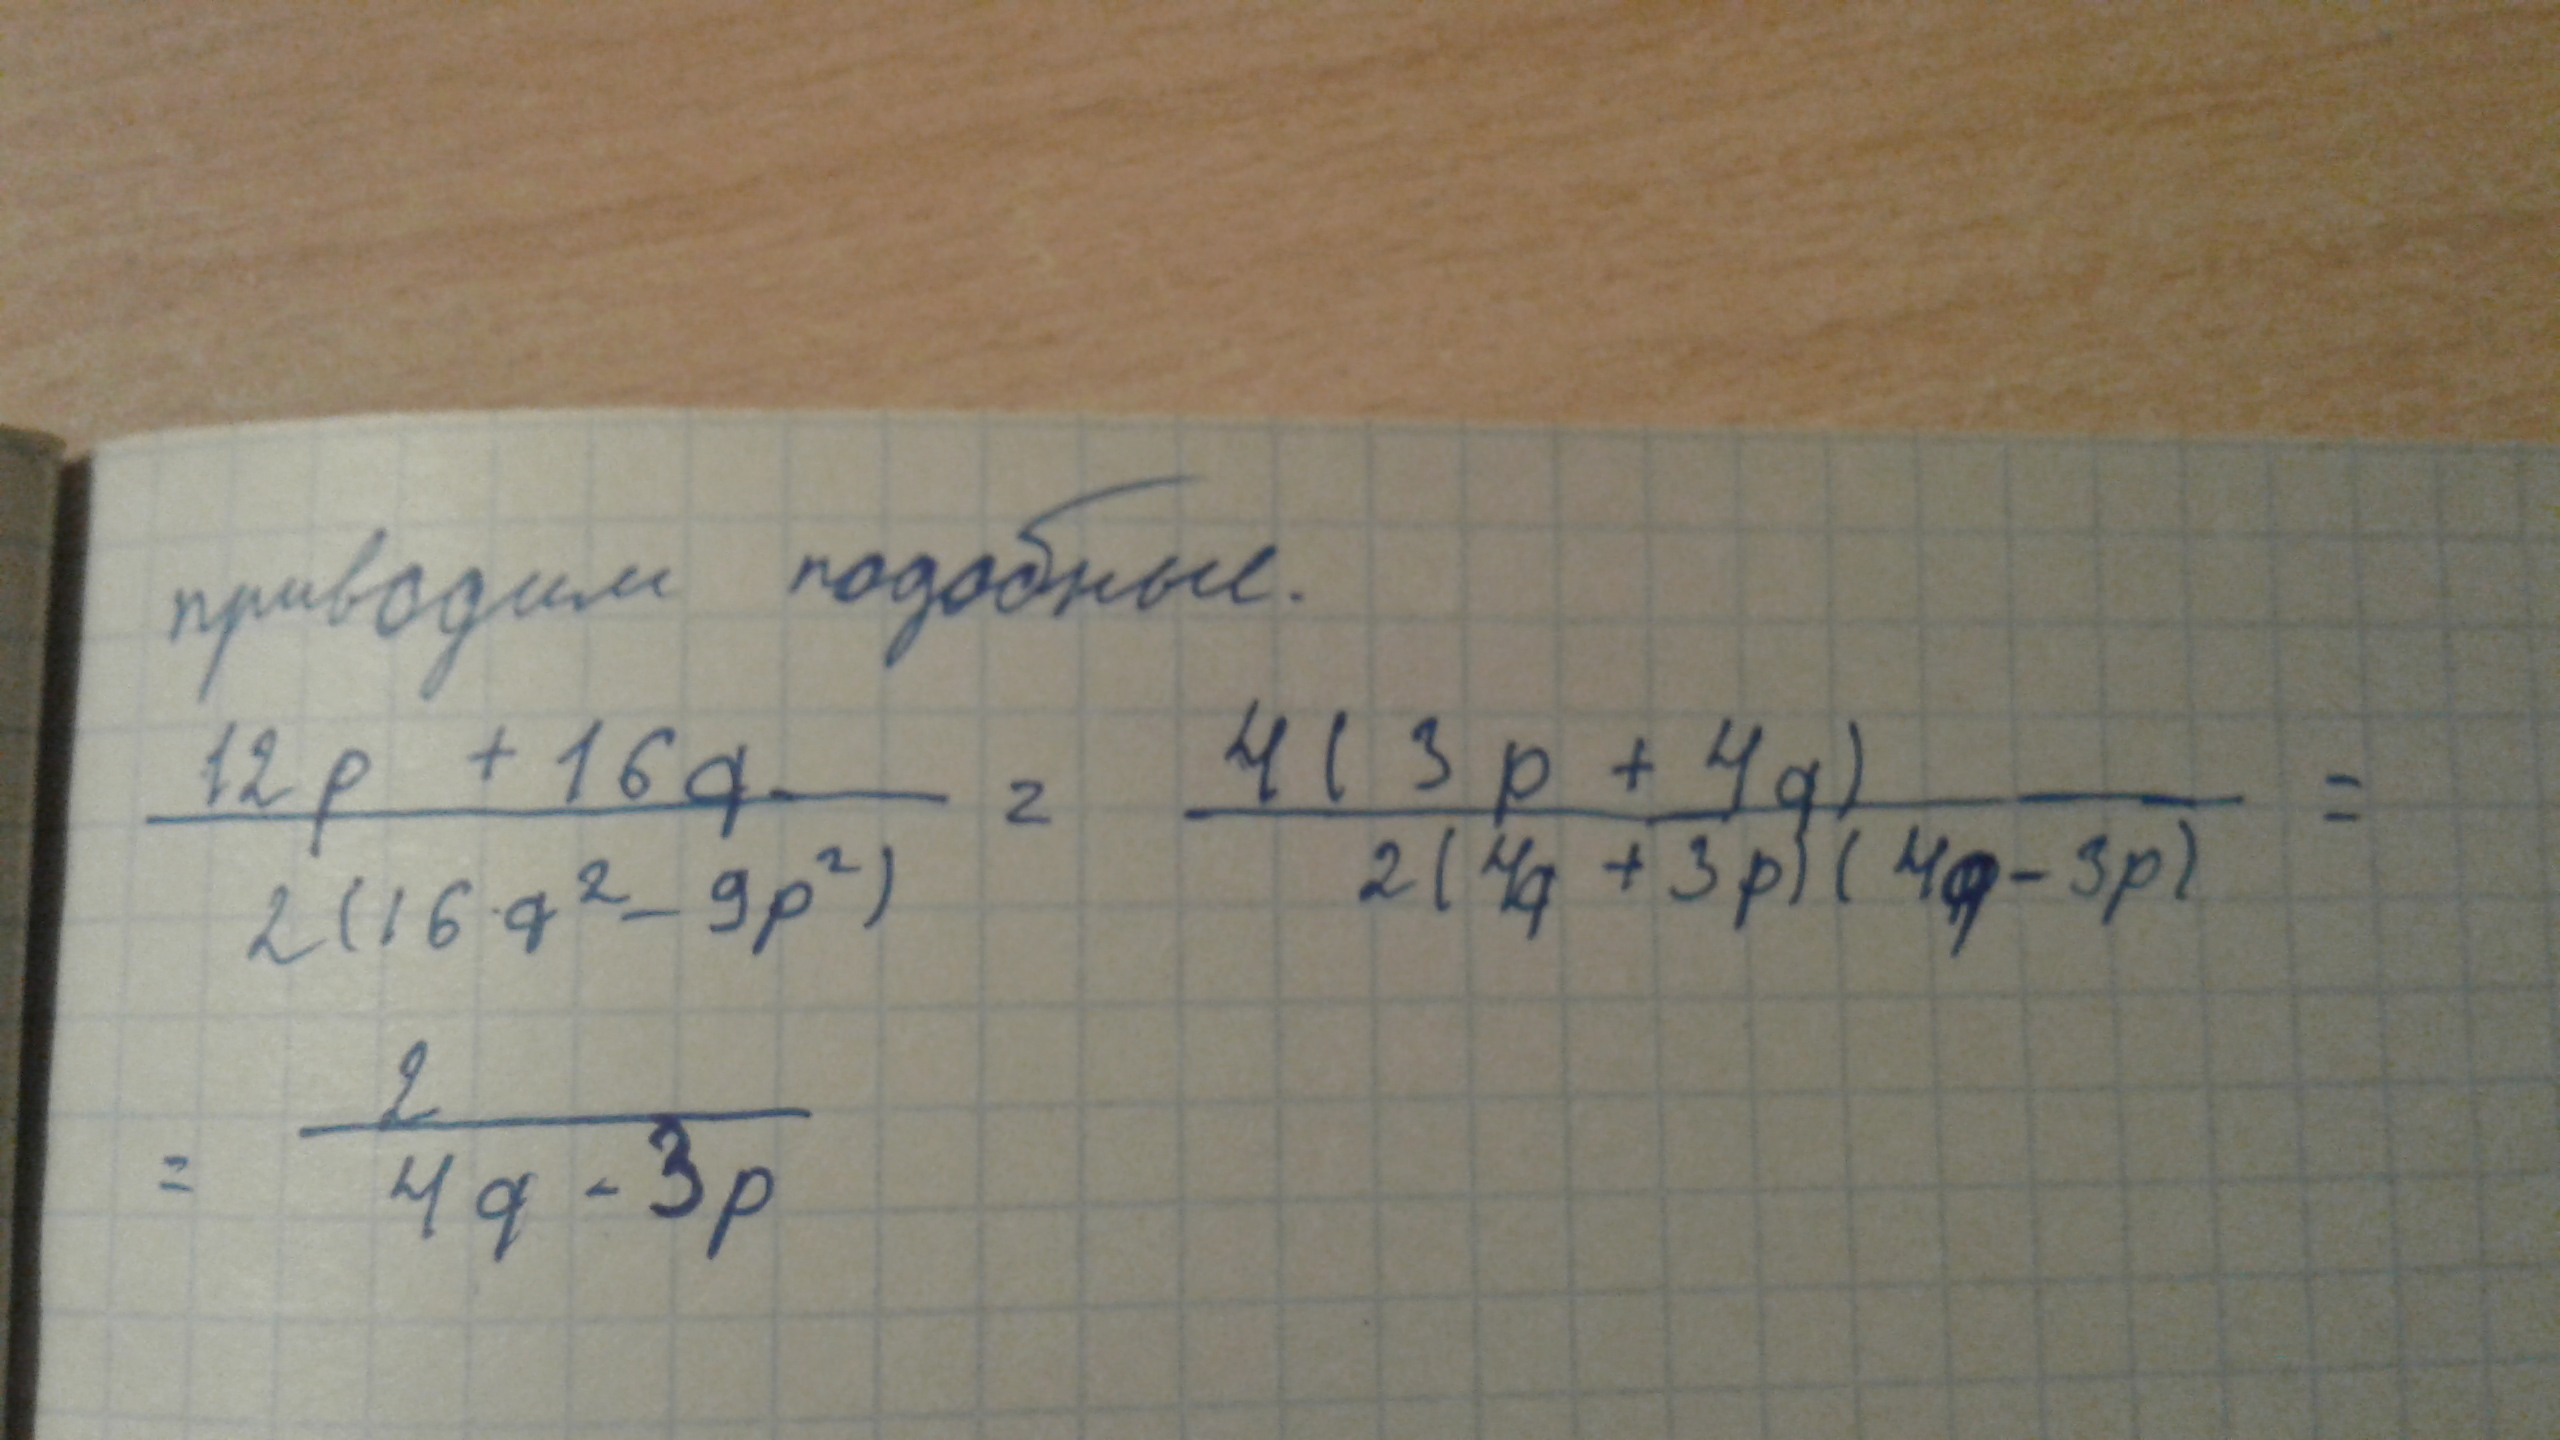 приводим подобные.
12p + 16q / 2(16q² - 9p²) = 4(3p + 4q) / 2(4q + 3p)(4q - 3p) =
= 2 / 4q - 3p